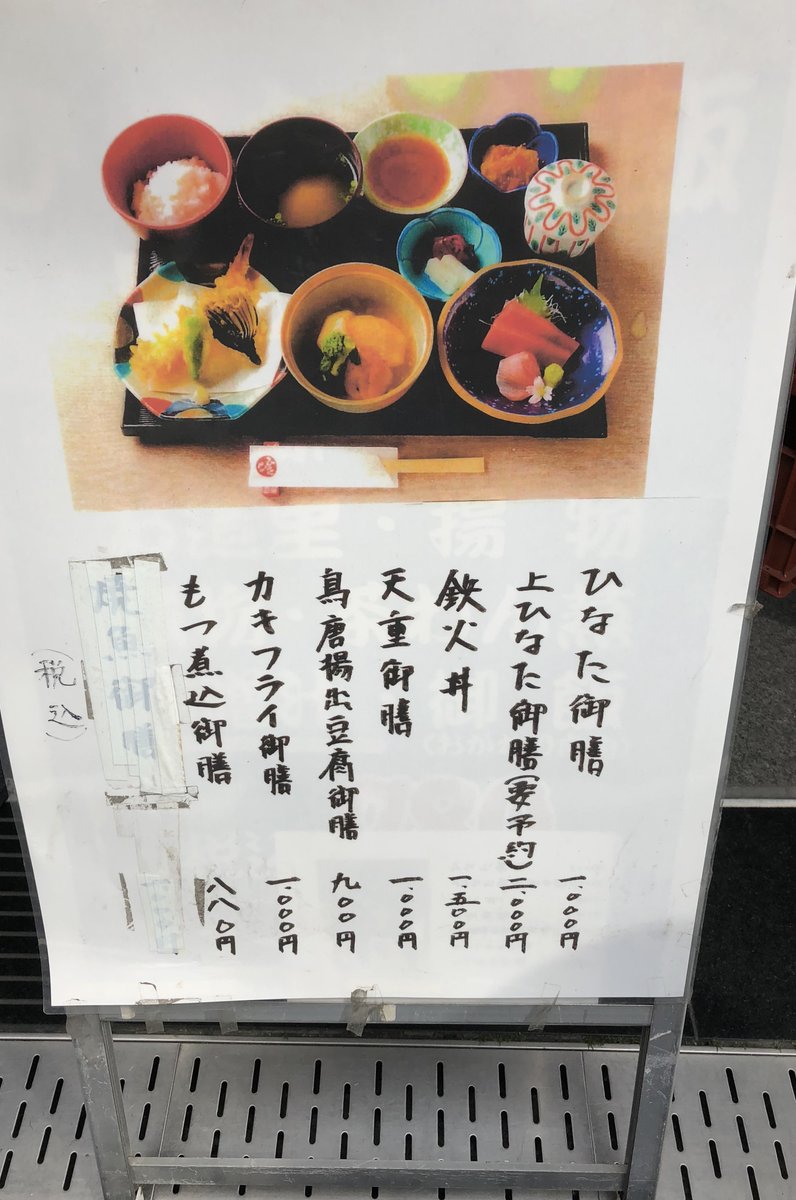 ひなた御膳 一、〇〇〇円
上ひなた御膳(要予約) 二、〇〇〇円
鉄火丼 一、五〇〇円
天重御膳 一、〇〇〇円
鳥唐揚出豆腐御膳 九〇〇円
カキフライ御膳 一、〇〇〇円
もつ煮込御膳 八八〇円
焼魚御膳
(税込)